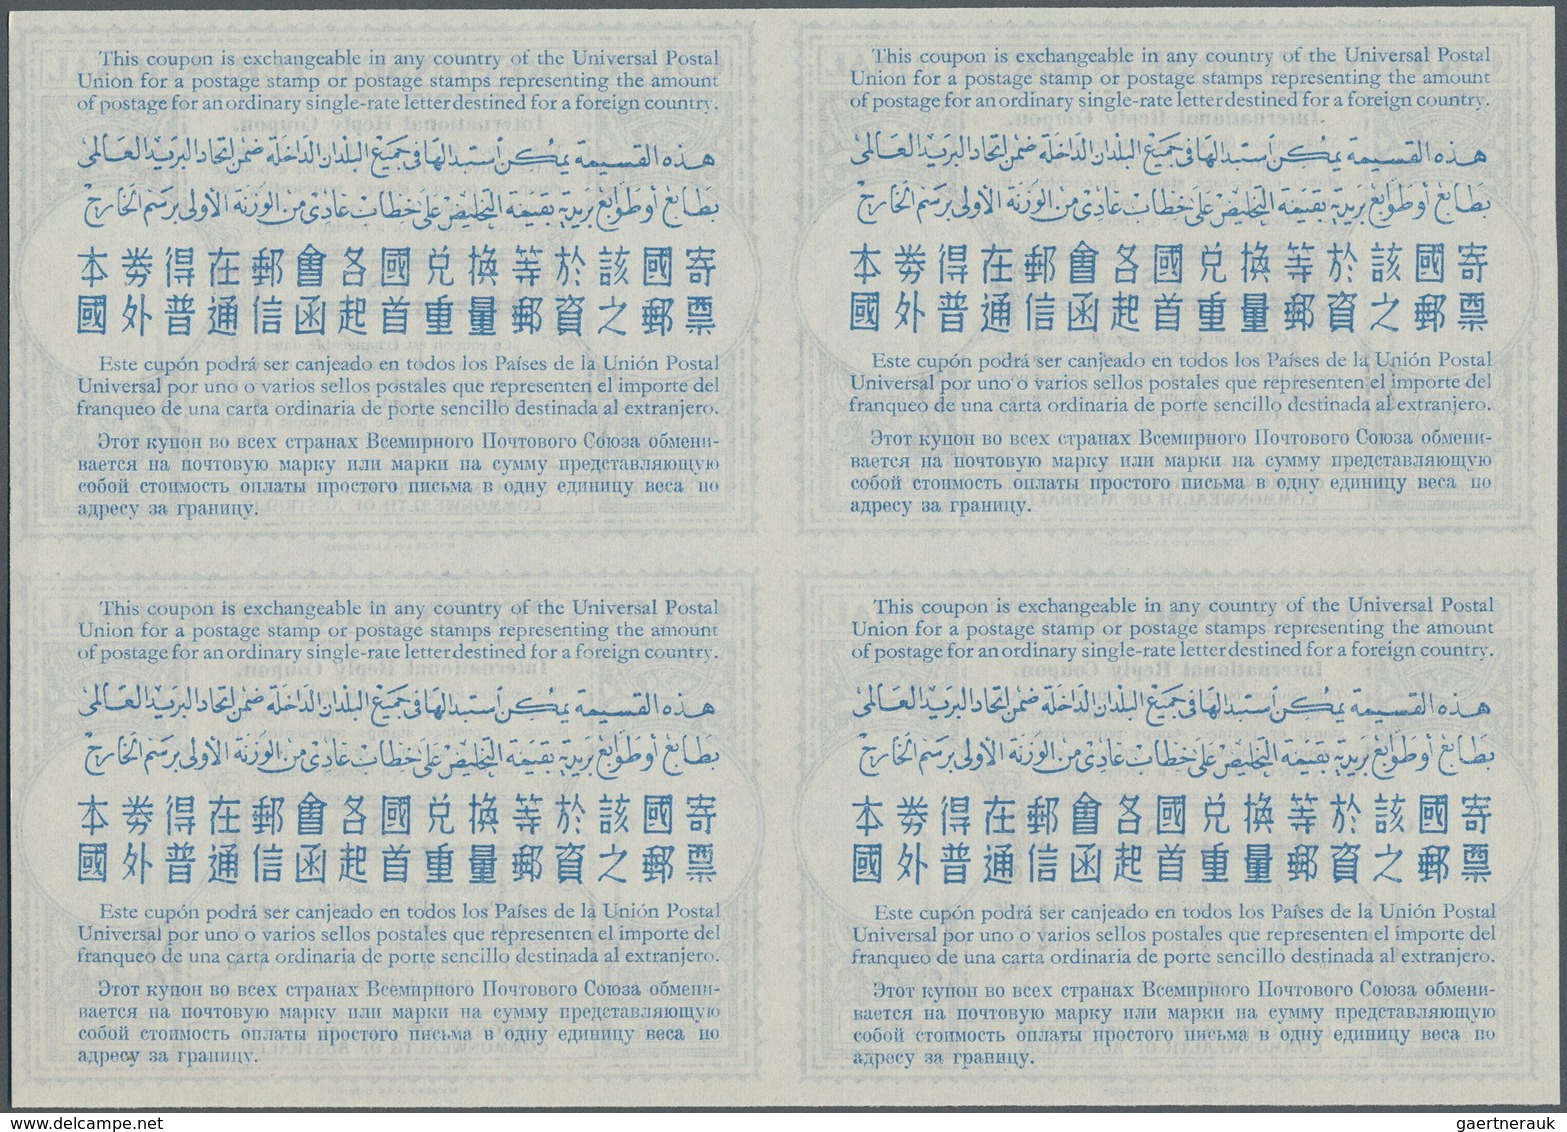 This coupon is exchangeable in any country of the Universal Postal
Union for a postage stamp or postage stamps representing the amount
of postage for an ordinary single-rate letter destined for a foreign country.
هذه القسيمة يمكن استبدالها في جميع البلدان الداخلة ضمن اتحاد البريد العالمى
بطابع أو طوابع بريدية بقيمة التخليص على خطاب عادى من الوزنة الأولى برسم الخارج
本劵得在郵會各國兌換等於該國寄
國外普通信函起首重量郵資之郵票
Este cupón podrá ser canjeado en todos los Países de la Unión Postal
Universal por uno o varios sellos postales que representen el importe del
franqueo de una carta ordinaria de porte sencillo destinada al extranjero.
Этот купон во всех странах Всемирного Почтового Союза обмени-
вается на почтовую марку или марки на сумму представляющую
собой стоимость оплаты простого письма в одну единицу веса по
адресу за границу.
This coupon is exchangeable in any country of the Universal Postal
Union for a postage stamp or postage stamps representing the amount
of postage for an ordinary single-rate letter destined for a foreign country.
هذه القسيمة يمكن استبدالها في جميع البلدان الداخلة ضمن اتحاد البريد العالمى
بطابع أو طوابع بريدية بقيمة التخليص على خطاب عادى من الوزنة الأولى برسم الخارج
本劵得在郵會各國兌換等於該國寄
國外普通信函起首重量郵資之郵票
Este cupón podrá ser canjeado en todos los Países de la Unión Postal
Universal por uno o varios sellos postales que representen el importe del
franqueo de una carta ordinaria de porte sencillo destinada al extranjero.
Этот купон во всех странах Всемирного Почтового Союза обмени-
вается на почтовую марку или марки на сумму представляющую
собой стоимость оплаты простого письма в одну единицу веса по
адресу за границу.
This coupon is exchangeable in any country of the Universal Postal
Union for a postage stamp or postage stamps representing the amount
of postage for an ordinary single-rate letter destined for a foreign country.
هذه القسيمة يمكن استبدالها في جميع البلدان الداخلة ضمن اتحاد البريد العالمى
بطابع أو طوابع بريدية بقيمة التخليص على خطاب عادى من الوزنة الأولى برسم الخارج
本劵得在郵會各國兌換等於該國寄
國外普通信函起首重量郵資之郵票
Este cupón podrá ser canjeado en todos los Países de la Unión Postal
Universal por uno o varios sellos postales que representen el importe del
franqueo de una carta ordinaria de porte sencillo destinada al extranjero.
Этот купон во всех странах Всемирного Почтового Союза обмени-
вается на почтовую марку или марки на сумму представляющую
собой стоимость оплаты простого письма в одну единицу веса по
адресу за границу.
This coupon is exchangeable in any country of the Universal Postal
Union for a postage stamp or postage stamps representing the amount
of postage for an ordinary single-rate letter destined for a foreign country.
هذه القسيمة يمكن استبدالها في جميع البلدان الداخلة ضمن اتحاد البريد العالمى
بطابع أو طوابع بريدية بقيمة التخليص على خطاب عادى من الوزنة الأولى برسم الخارج
本劵得在郵會各國兌換等於該國寄
國外普通信函起首重量郵資之郵票
Este cupón podrá ser canjeado en todos los Países de la Unión Postal
Universal por uno o varios sellos postales que representen el importe del
franqueo de una carta ordinaria de porte sencillo destinada al extranjero.
Этот купон во всех странах Всемирного Почтового Союза обмени-
вается на почтовую марку или марки на сумму представляющую
собой стоимость оплаты простого письма в одну единицу веса по
адресу за границу.
Delcampe.net
gaertnerauk